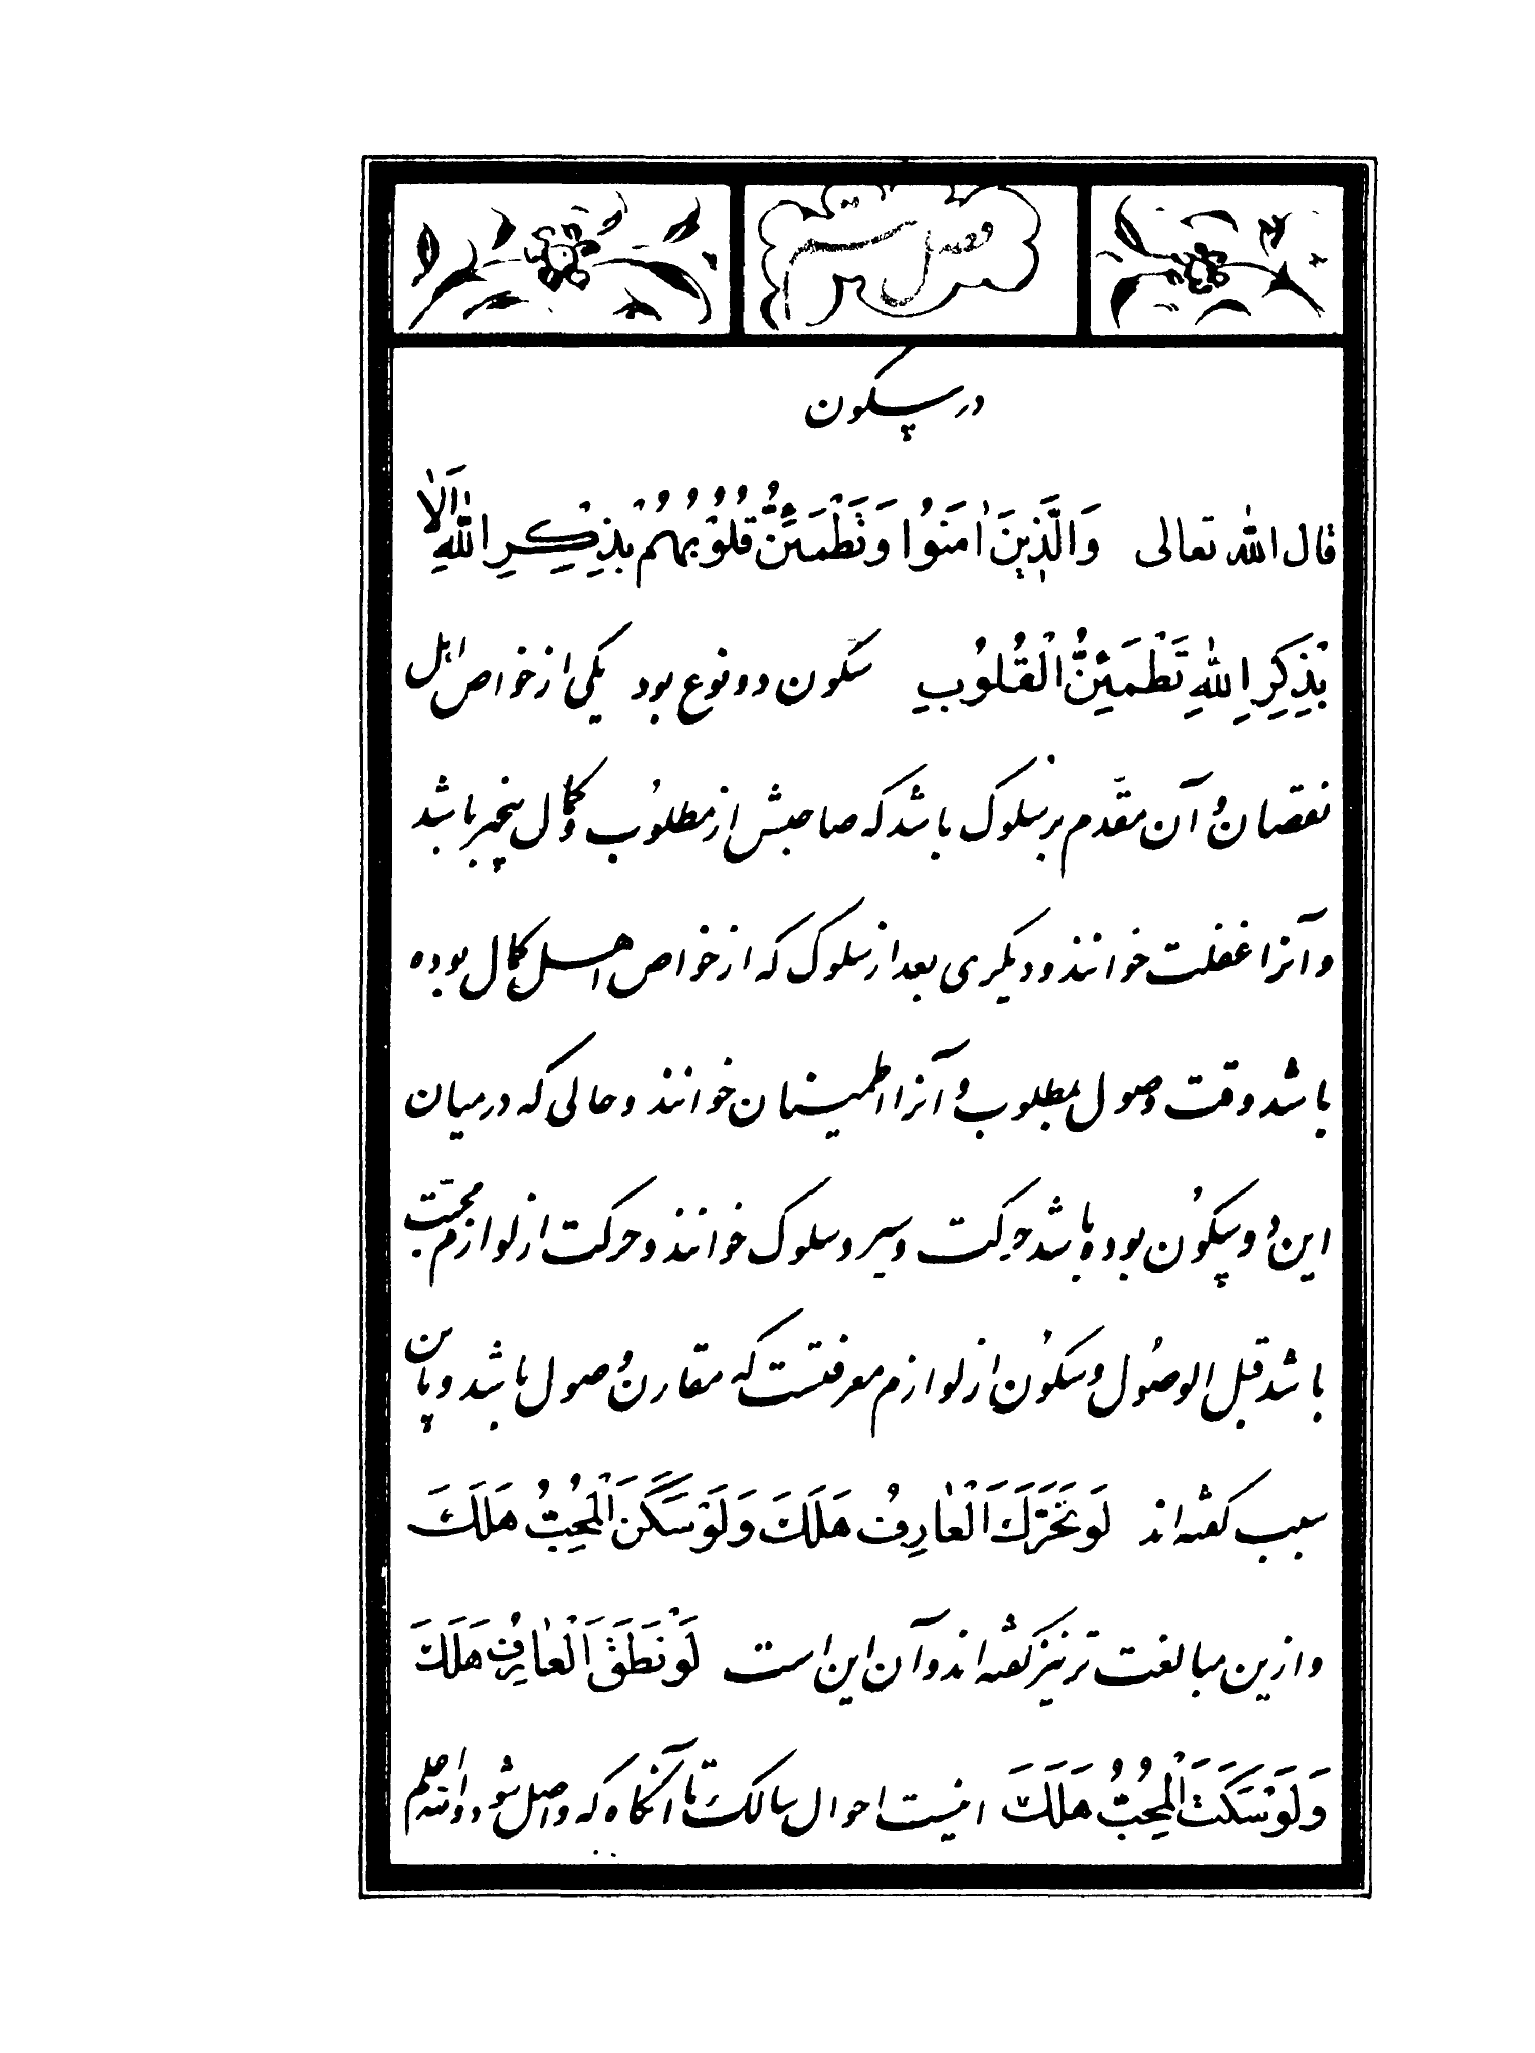 فصل ششم
در سکون
قال الله تعالی وَالَّذِینَ اٰمَنُوا وَتَطْمَئِنُّ قُلُوْبُهُمْ بِذِکْرِ اللّٰهِ اَلاٰ
بِذِکْرِ اللّٰهِ تَطْمَئِنُّ الْقُلُوبِ سکون دو نوع بود یکی از خواص اهل
نقصان و آن مقدم بر سلوک باشد که صاحبش از مطلوب و کمال بیخبر باشد
و آنرا غفلت خوانند و دیگری بعد از سلوک که از خواص اهل کمال بوده
باشد وقت وصول بمطلوب و آنرا اطمینان خوانند و حالی که در میان
این دو سکون بوده باشد حرکت و سیر و سلوک خوانند و حرکت از لوازم محبت
باشد قبل الوصول و سکون از لوازم معرفتست که مقارن وصول باشد و باین
سبب گفته‌اند لَوْ تَحَرَّكَ الْعٰارِفُ هَلَكَ وَلَوْ سَكَنَ الْمُحِبُّ هَلَكَ
و ازین مبالغت تر نیز گفته‌اند و آن این است لَوْ نَطَقَ الْعٰارِفُ هَلَكَ
وَلَوْ سَكَتَ الْمُحِبُّ هَلَكَ اینست احوال سالک تا آنگاه که واصل شود والله اعلم